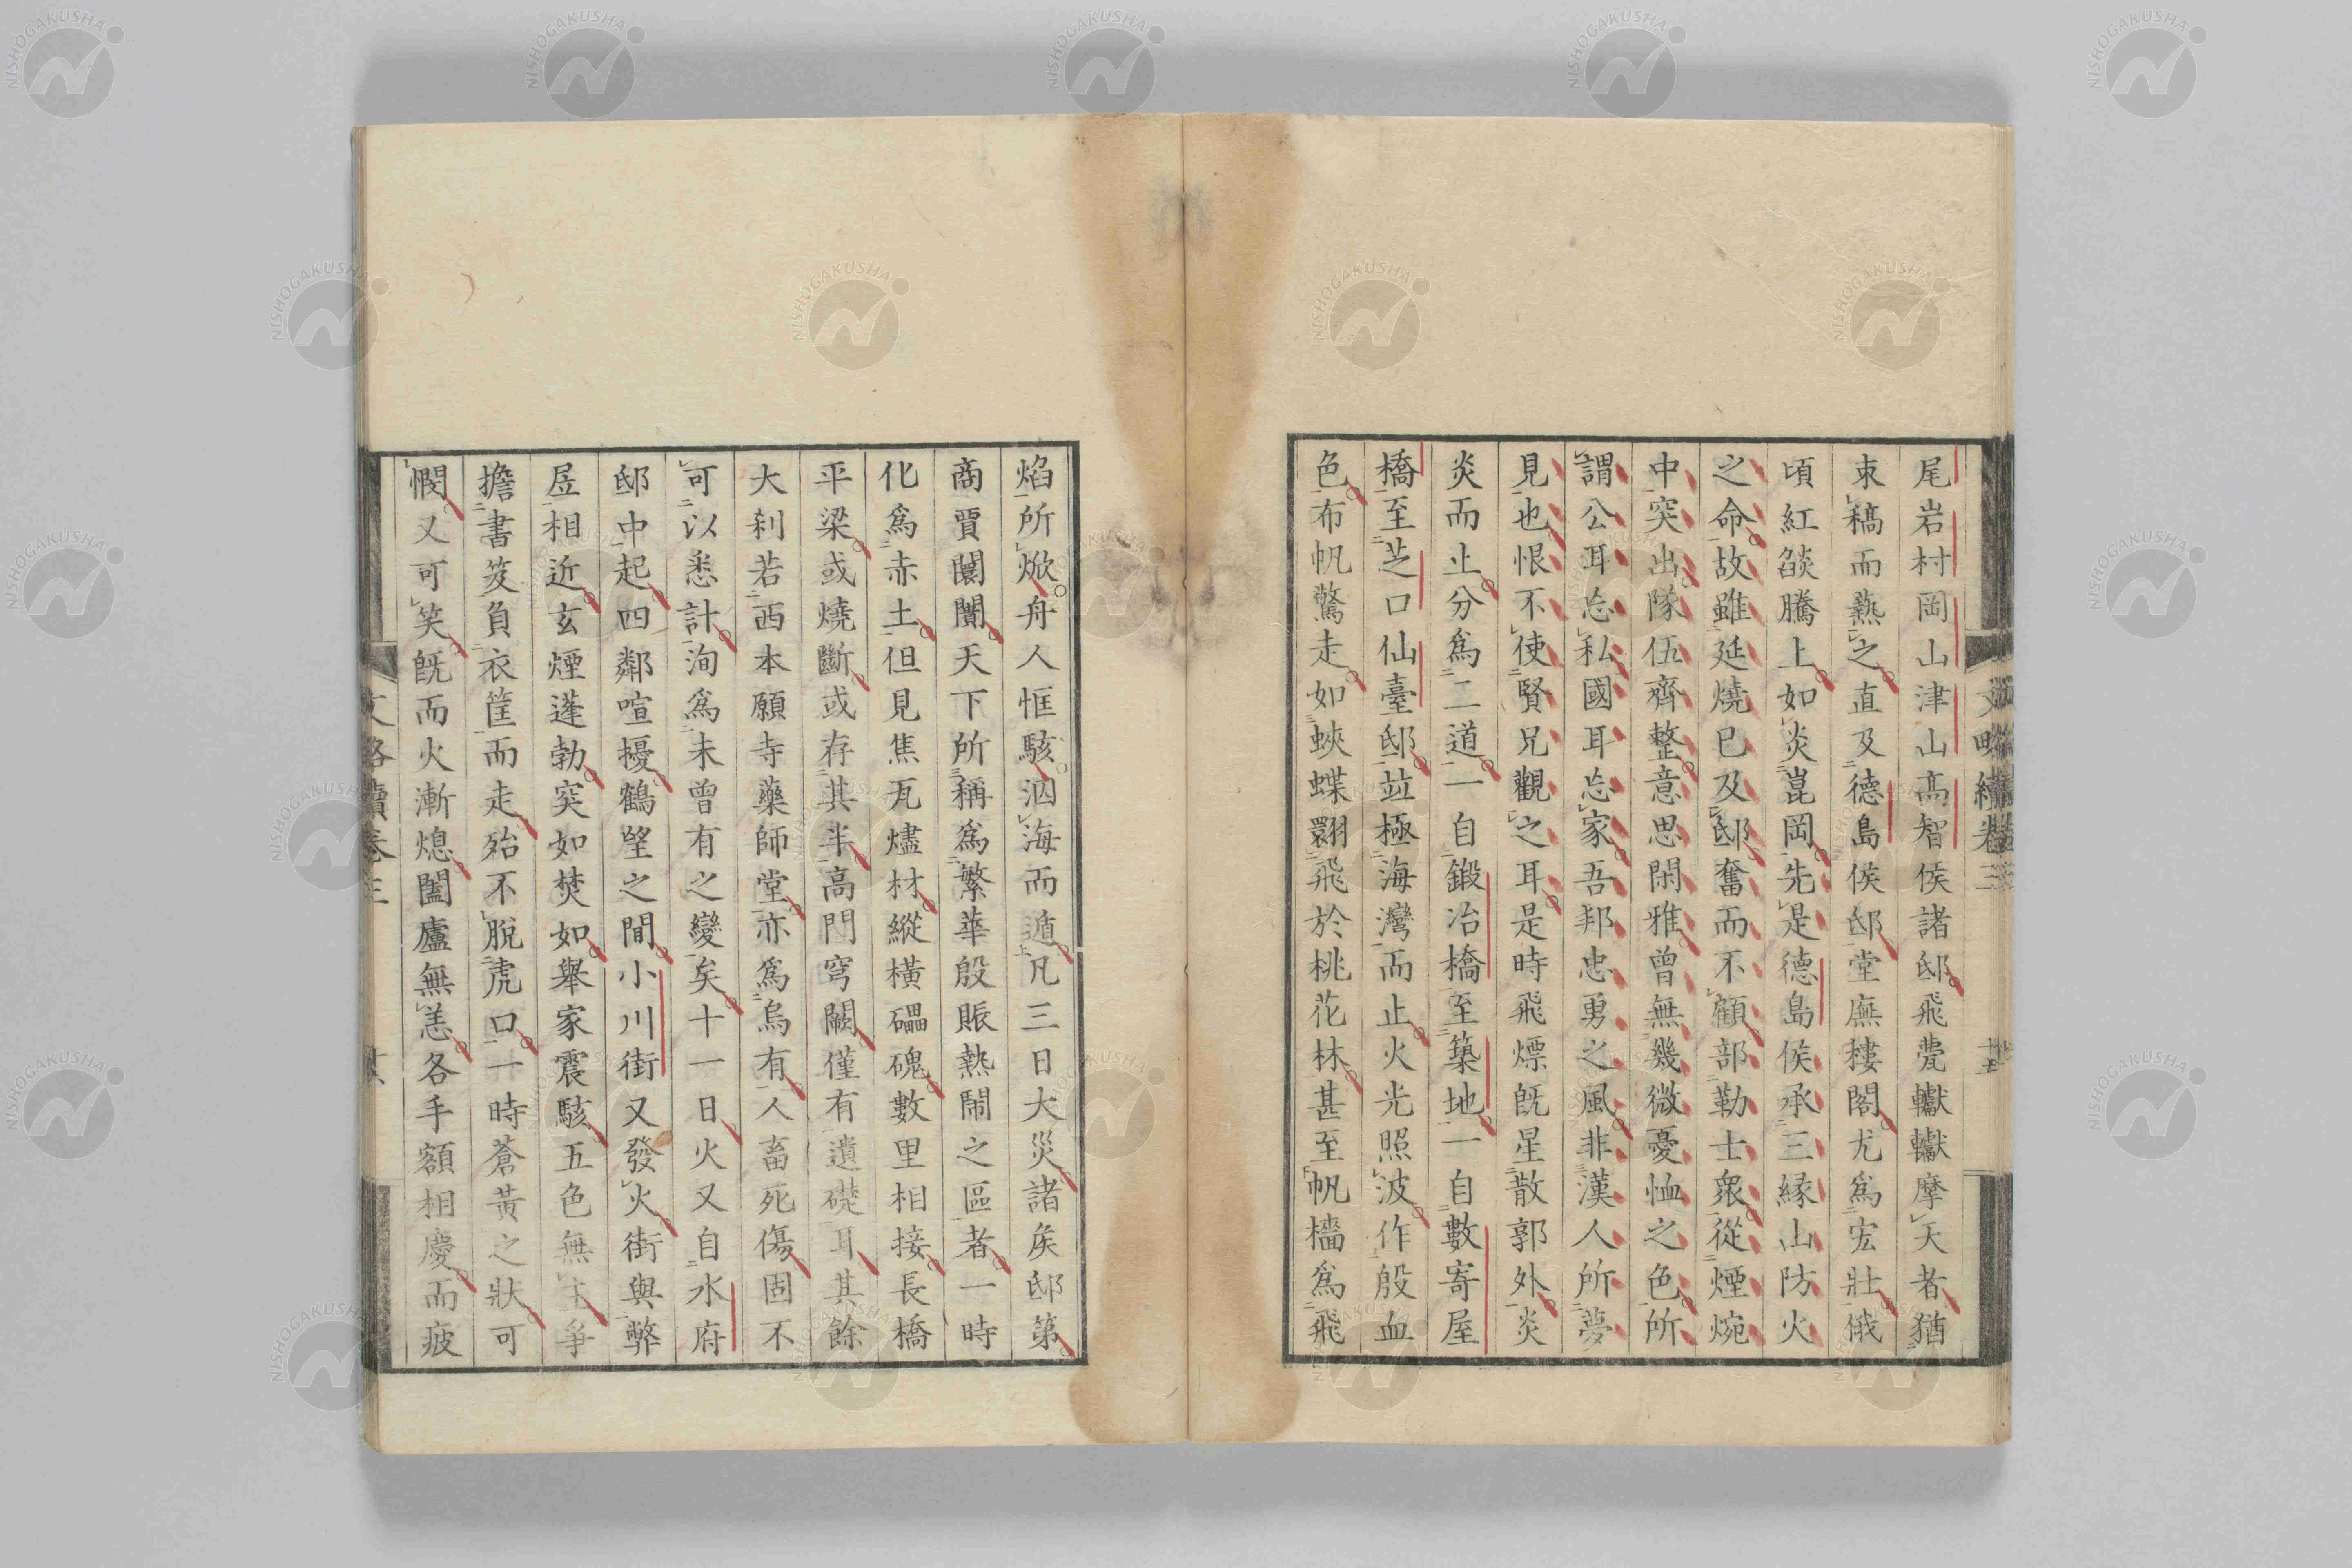 尾岩村岡山津山高智侯諸邸飛甍巘巘摩天者猶
束稿而爇之直及德島侯邸堂廡樓閣尤爲宏壯俄
頃紅燄騰上如炎崑岡先是德島侯承三緣山防火
之命故雖延燒已及邸奮而不顧部勒士衆從煙焥
中突出隊伍齊整意思閑雅曾無幾微憂恤之色所
謂公耳忘私國耳忘家吾邦忠勇之風非漢人所夢
見也恨不使賢兄觀之耳是時飛熛旣星散郭外炎
炎而止分爲二道一自鍛冶橋至築地一自數寄屋
橋至芝口仙臺邸竝極海灣而止火光照波作殷血
色布帆驚走如蛺蝶翾飛於桃花林甚至帆檣爲飛
文略續卷三
十五
焰所焮舟人恇駭泅海而遁凡三日大災諸矦邸第
商賈闤闠天下所稱爲繁華殷賑熱鬧之區者一時
化爲赤土但見焦瓦燼材縱橫礧磈數里相接長橋
平梁或燒斷或存其半高門穹闕僅有遺礎耳其餘
大刹若西本願寺藥師堂亦爲烏有人畜死傷固不
可以悉計洵爲未曾有之變矣十一日火又自水府
邸中起四鄰喧擾鶴望之間小川街又發火街與弊
居相近玄煙蓬勃突如焚如舉家震駭五色無主爭
擔書笈負衣筐而走殆不脫虎口一時蒼黃之狀可
憫又可笑旣而火漸熄闔廬無恙各手額相慶而疲
文略續卷三
NISHOGAKUSHA